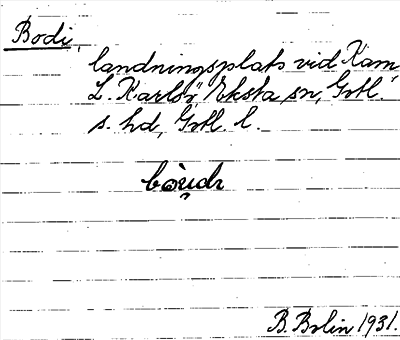 Bodi,
landningsplats vid Kam
L. Karlsö, Eksta sn, Gotl.
s. hd, Gotl. l.
B. Bolin 1931.